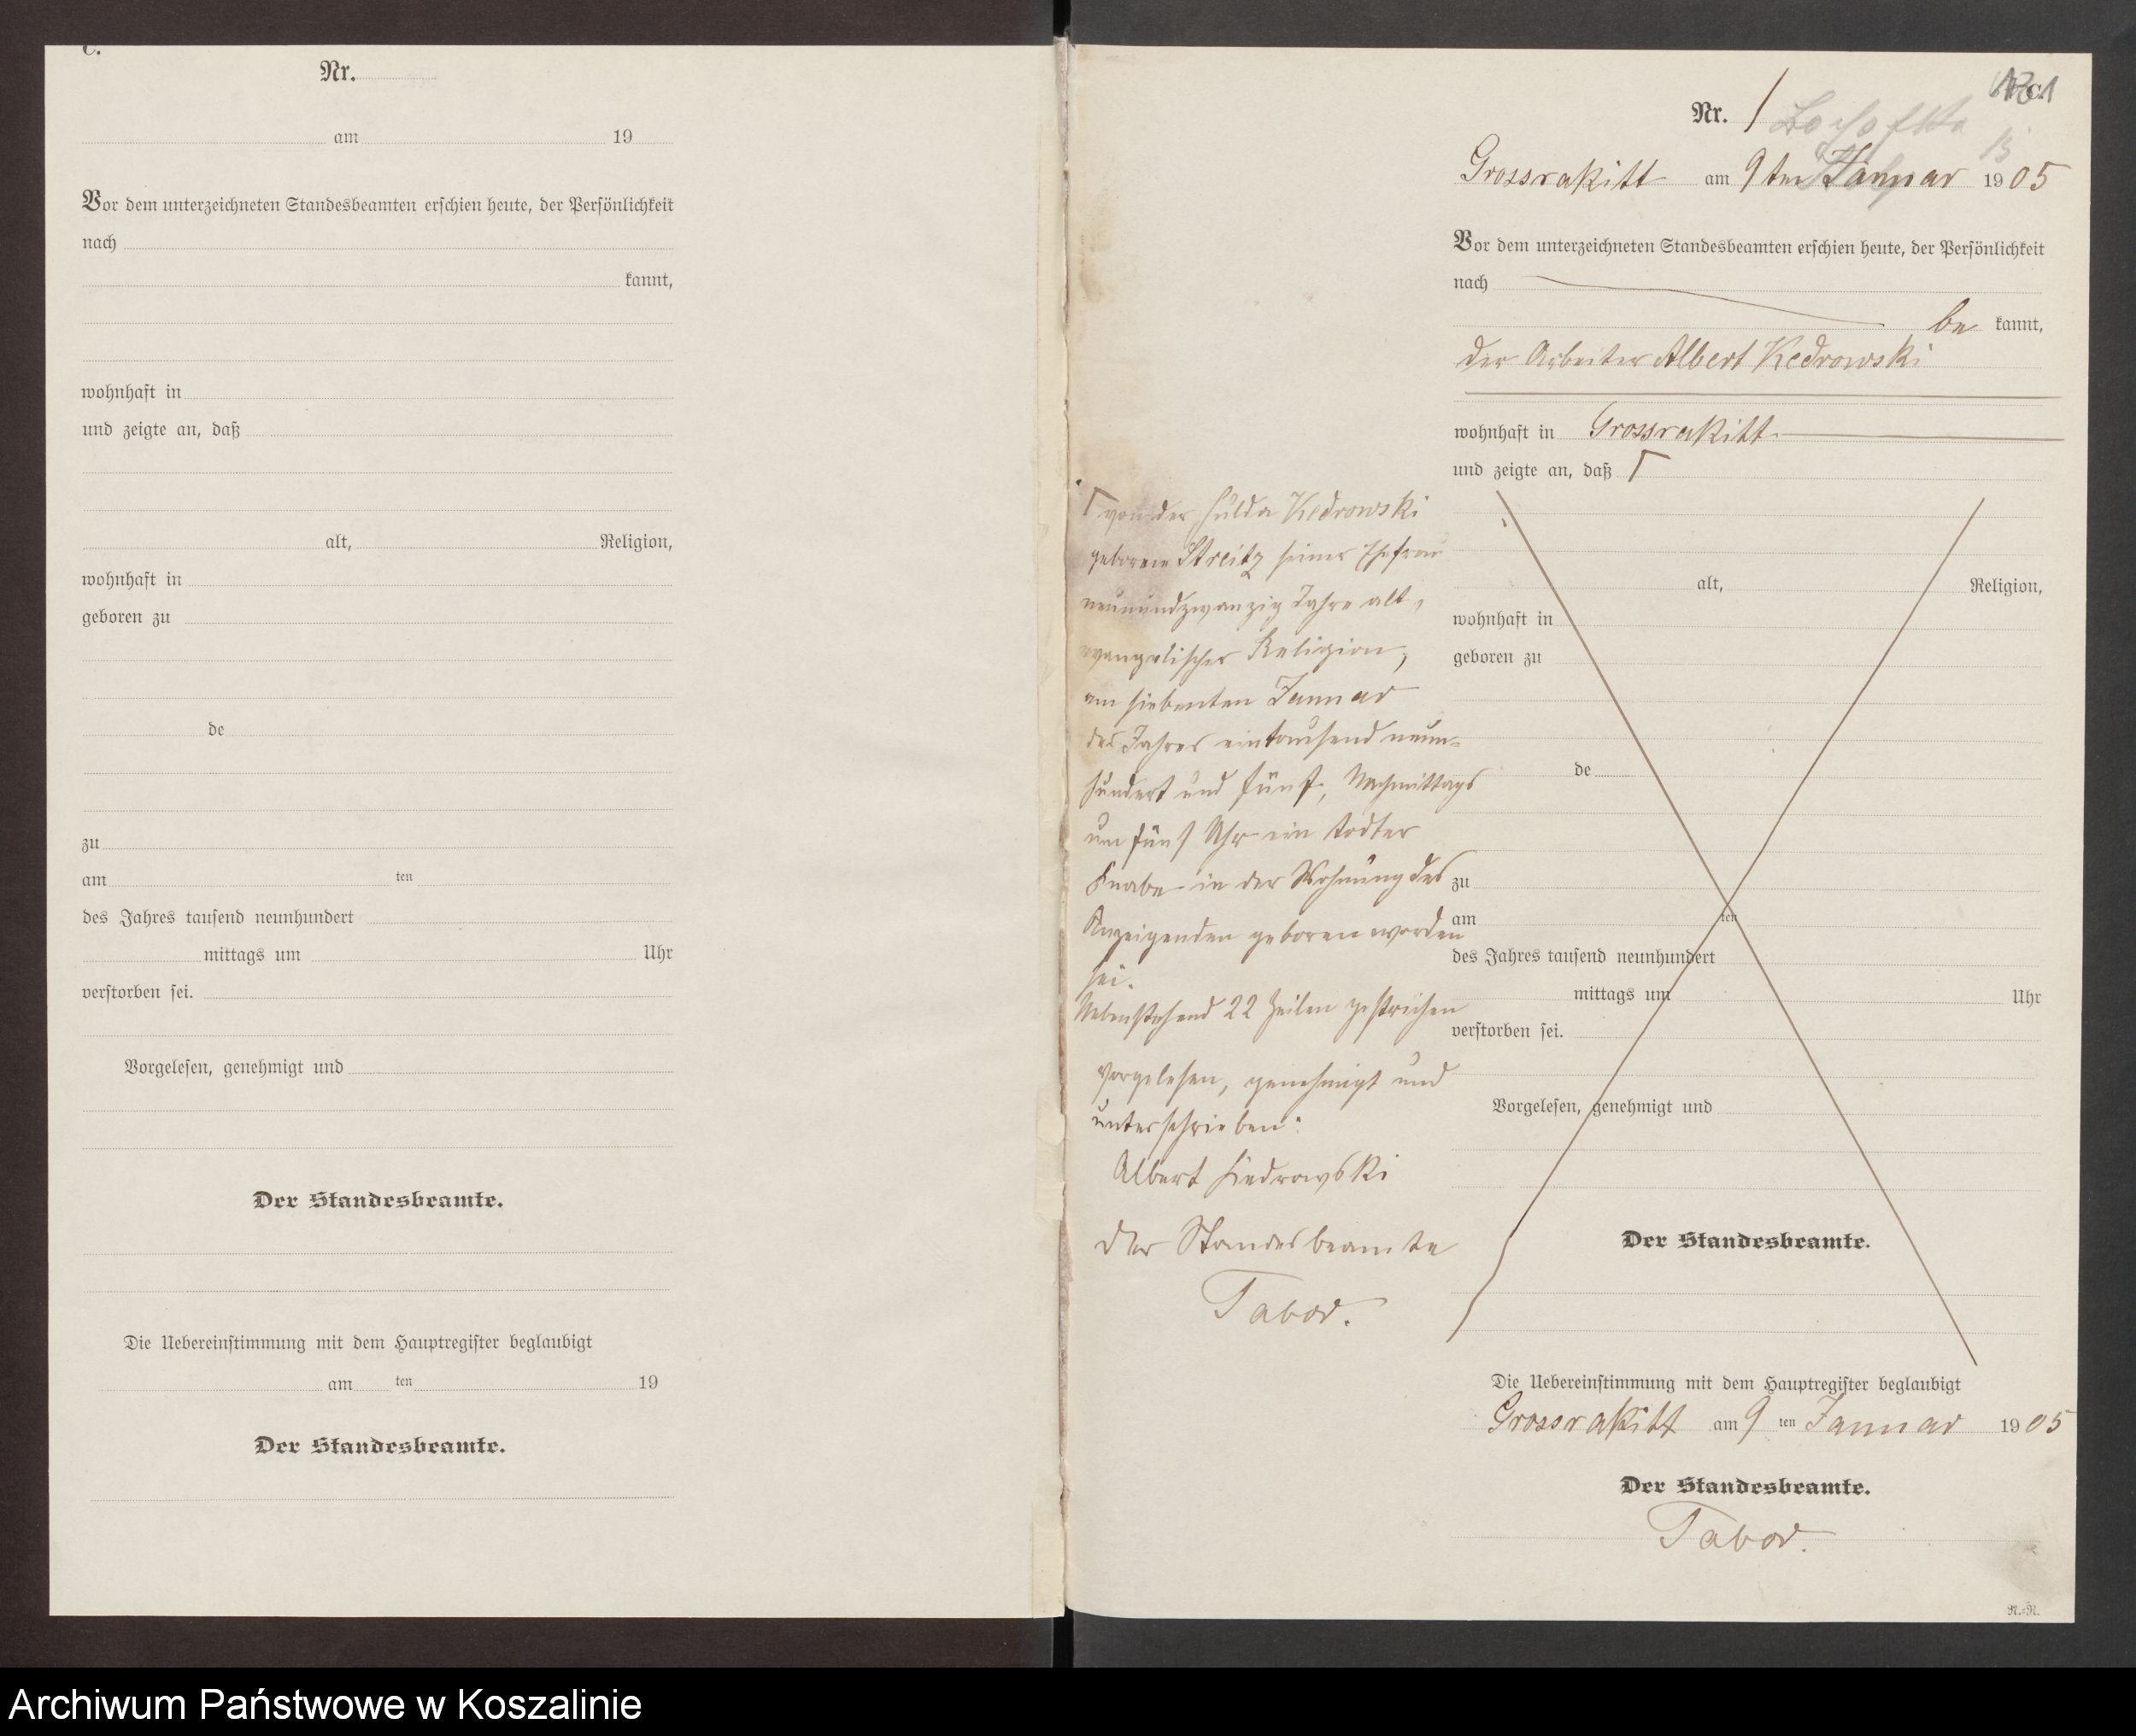 C.
Nr.
am 19
Vor dem unterzeichneten Standesbeamten erschien heute, der Persönlichkeit
nach
kannt,
wohnhaft in
und zeigte an, daß
alt, Religion,
wohnhaft in
geboren zu
de
zu
am ten
des Jahres tausend neunhundert
mittags um Uhr
verstorben sei.
Vorgelesen, genehmigt und
Der Standesbeamte.
Die Uebereinstimmung mit dem Hauptregister beglaubigt
am ten 19
Der Standesbeamte.
Nr. 1
Grossrakitt am 9ten Januar 1905
Vor dem unterzeichneten Standesbeamten erschien heute, der Persönlichkeit
nach
be kannt,
der Arbeiter Albert Kedrowski
wohnhaft in Grossrakitt
und zeigte an, daß Γ
Γ von der Hulda Kedrowski
geborene Streitz seiner Ehefrau
neunundzwanzig Jahre alt,
evangelischer Religion,
am siebenten Januar
des Jahres eintausend neun-
hundert und fünf, Nachmittags
um fünf Uhr ein todter
Knabe in der Wohnung des
Anzeigenden geboren worden
sei.
Nebenstehend 22 Zeilen gestrichen
Vorgelesen, genehmigt und
unterschrieben:
Albert Kiedrowski
Der Standesbeamte
Tabor.
alt, Religion,
wohnhaft in
geboren zu
de
zu
am ten
des Jahres tausend neunhundert
mittags um Uhr
verstorben sei.
Vorgelesen, genehmigt und
Der Standesbeamte.
Die Uebereinstimmung mit dem Hauptregister beglaubigt
Grossrakitt am 9 ten Januar 1905
Der Standesbeamte.
Tabor.
N.-N.
Archiwum Państwowe w Koszalinie